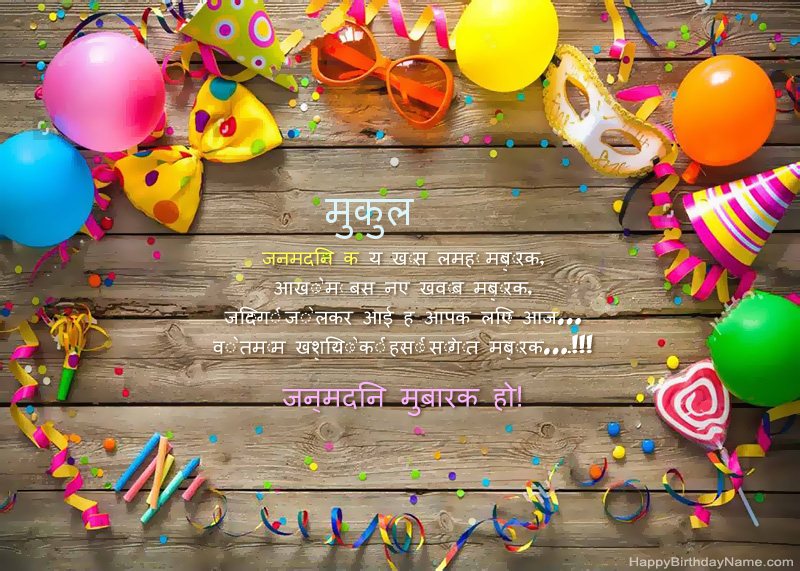 मुकुल
जन्मदिन के ये ख़ास लम्हें मुबारक,
आँखों में बसे नए ख्वाब मुबारक,
जिंदगी जो लेकर आई है आपके लिए आज...
वो तमाम खुशियों की हंसीं सौगात मुबारक...!!!
जन्मदिन मुबारक हो!
HappyBirthdayName.com